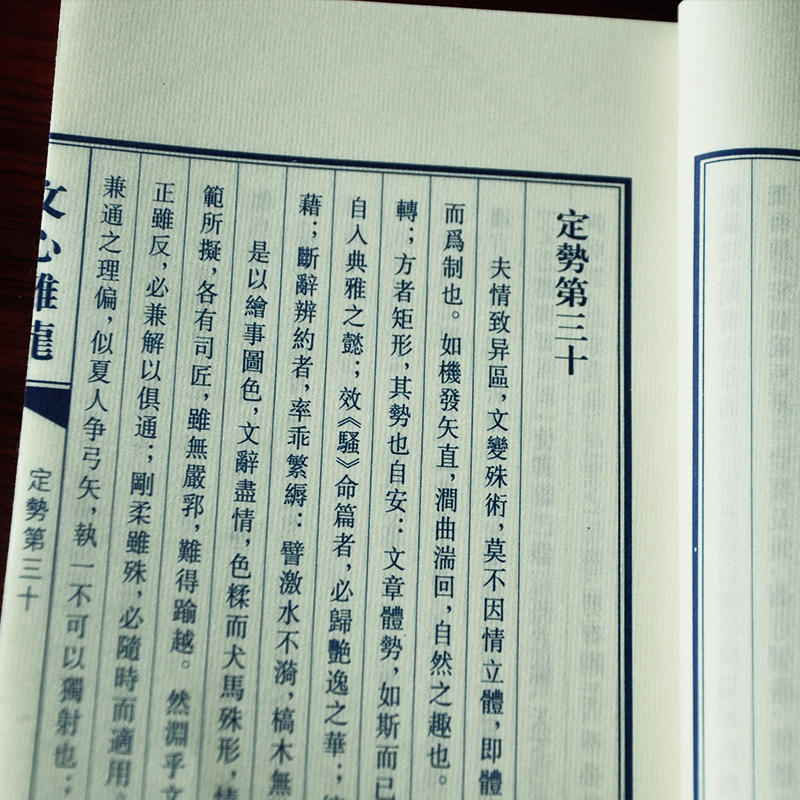 定勢第三十
夫情致异區，文變殊術，莫不因情立體，即體
而爲制也。如機發矢直，澗曲湍回，自然之趣也。
轉；方者矩形，其勢也自安：文章體勢，如斯而已
自入典雅之懿；效《騷》命篇者，必歸艷逸之華；
藉；斷辭辨約者，率乖繁縟：譬激水不漪，槁木無
是以繪事圖色，文辭盡情，色糅而犬馬殊形，情
範所擬，各有司匠，雖無嚴郛，難得踰越。然淵乎文
正雖反，必兼解以俱通；剛柔雖殊，必隨時而適用
兼通之理偏，似夏人争弓矢，執一不可以獨射也；
文心雕龍
定勢第三十